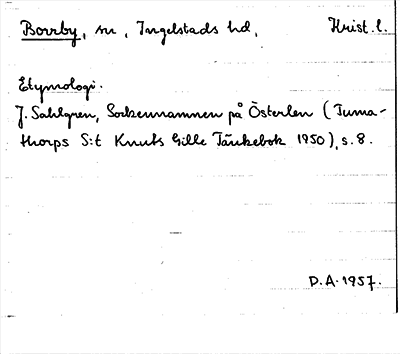 Borrby, sn, Ingelstads hd, Krist. l.
Etymologi.
J. Sahlgren, Sockennamnen på Österlen (Tuma-
thorps S:t Knuts Gille Tänkebok 1950), s. 8.
D.A. 1957.